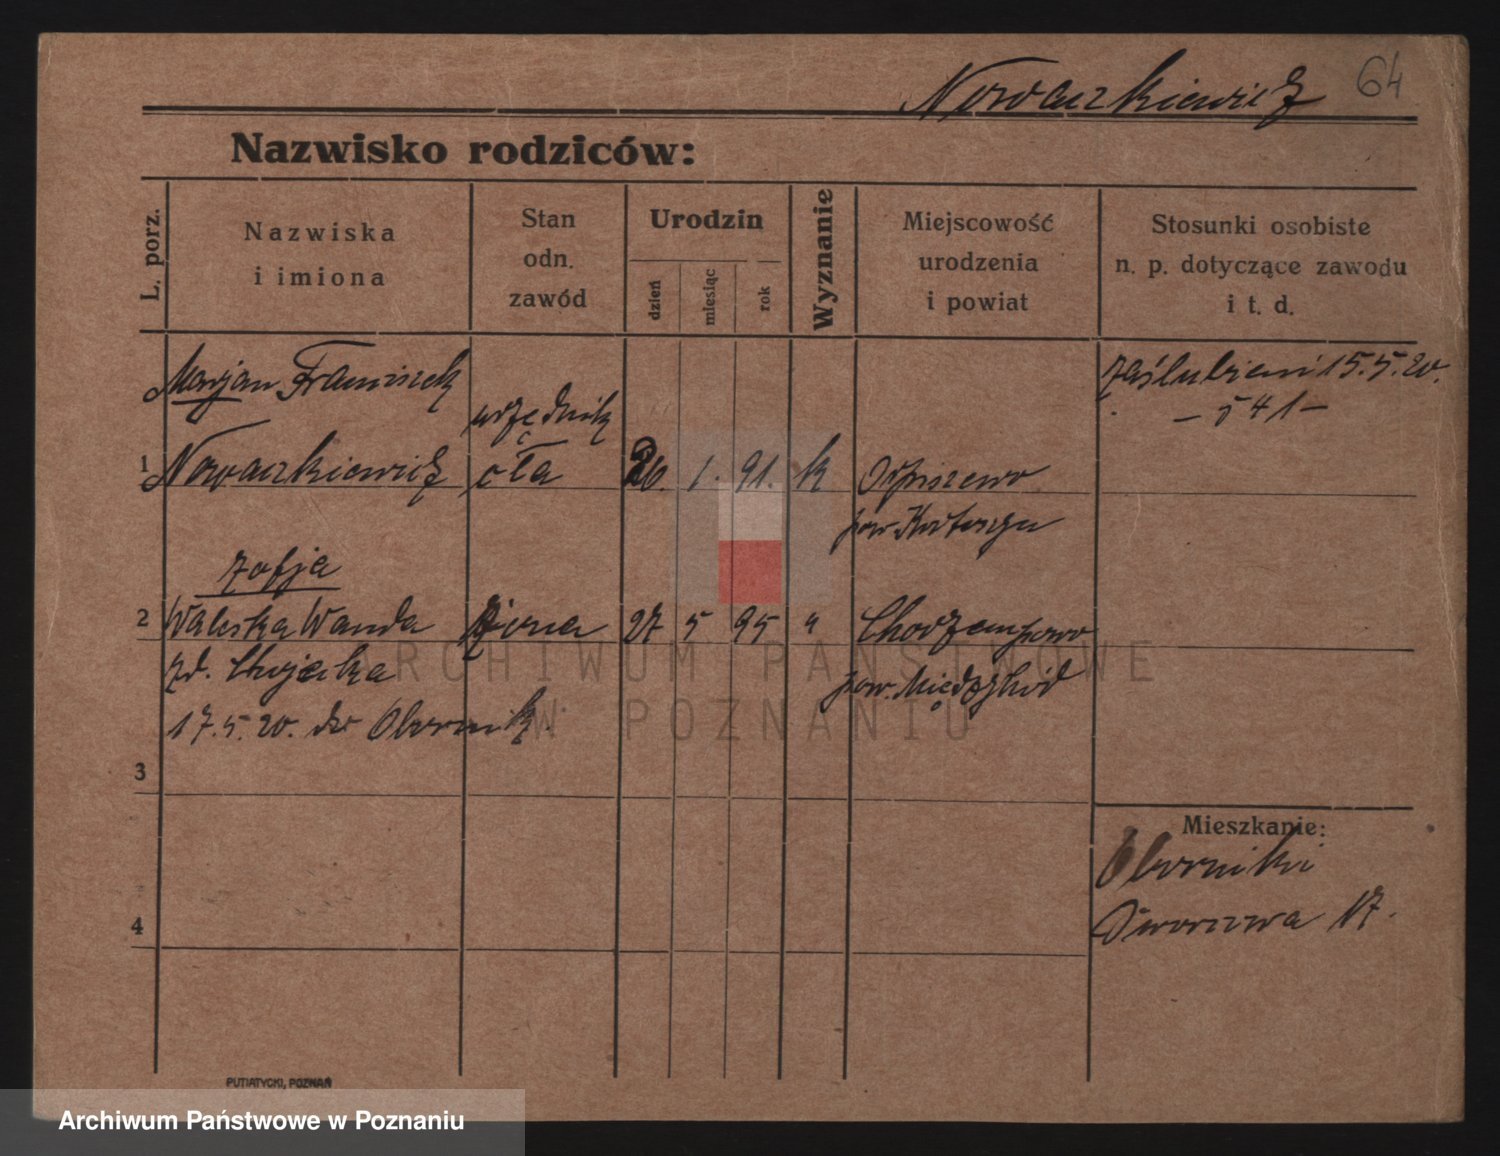 Nowaczkiewicz 64
Nazwisko rodziców:
L. porz.
Nazwiska
i imiona
Stan
odn.
zawód
Urodzin
dzień
miesiąc
rok
Wyznanie
Miejscowość
urodzenia
i powiat
Stosunki osobiste
n. p. dotyczące zawodu
i t. d.
Marjan Franciszek
urzędnik
zaślubieni 15.5.20.
– 541 –
1 Nowaczkiewicz cła 26. 1. 91. k
pow.
Zofja
2 Waleska Wanda żona 27 5 95 "
zd. Chojecka
pow. Międzychód
17.5.20. do Obornik.
3
Mieszkanie:
Oborniki
Dworcowa 17.
4
PUTIATYCKI, POZNAŃ
ARCHIWUM PAŃSTWOWE
W POZNANIU
Archiwum Państwowe w Poznaniu